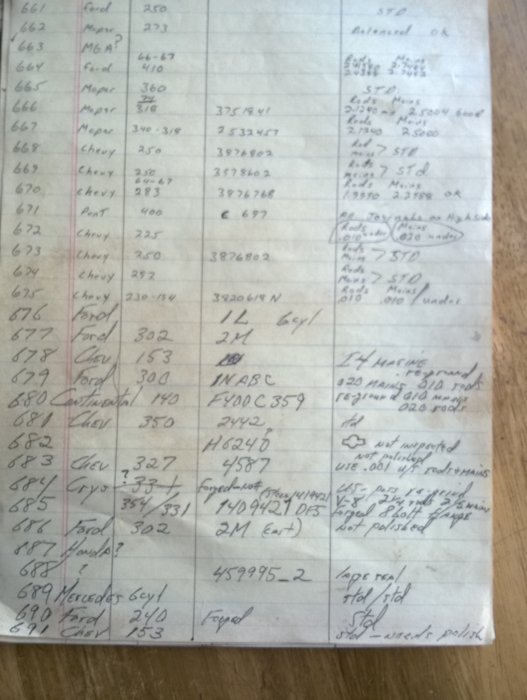 661 Ford 250 STD
662 Mopar 273 Balanced OK
663 MGA?
66-67 Rods Mains
664 Ford 410
665 Mopar 360 STD
74 Rods Mains
666 Mopar 318 3751841 2.1240 2.5004 Good
Rods Mains
667 Mopar 340-318 2532457 2.1240 2.5000
668 Chevy 250 3876802 Rod mains > STD
669 Chevy 250 3978602 Rods mains > STD
64-67 Rods Mains
670 Chevy 283 3876768 OK
671 Pont 400 C 697 Journals on High side
672 Chevy 225 Rods .010 under Mains .020 under
673 Chevy 250 3876802 Rods Mains > STD
674 Chevy 292 Rods Mains > STD
675 Chevy 230-194 3820618N Rods .010 Mains .010 / under
676 Ford 1L 6cyl
677 Ford 302 2M
678 Chev 153 I4 MARINE
679 Ford 300 1NABC reground 020 MAINS 010 rods
680 Continental 140 F400C359 reground 010 mains 020 rods
681 Chev 350 2442 std
682 H6240 not inspected
683 Chev 327 4587 not polished USE .001 U/S rods + MAINS
684 Crys? 331 Forged
685 354/331 1409421 DF5 V-8 Forged 8 bolt FLANGE
686 Ford 302 2M (cast) not polished
687 Honda?
688 ? 459995_2 Imperial
689 Mercedes 6cyl std/std
690 Ford 240 Forged std
691 Chev 153 std - needs polish